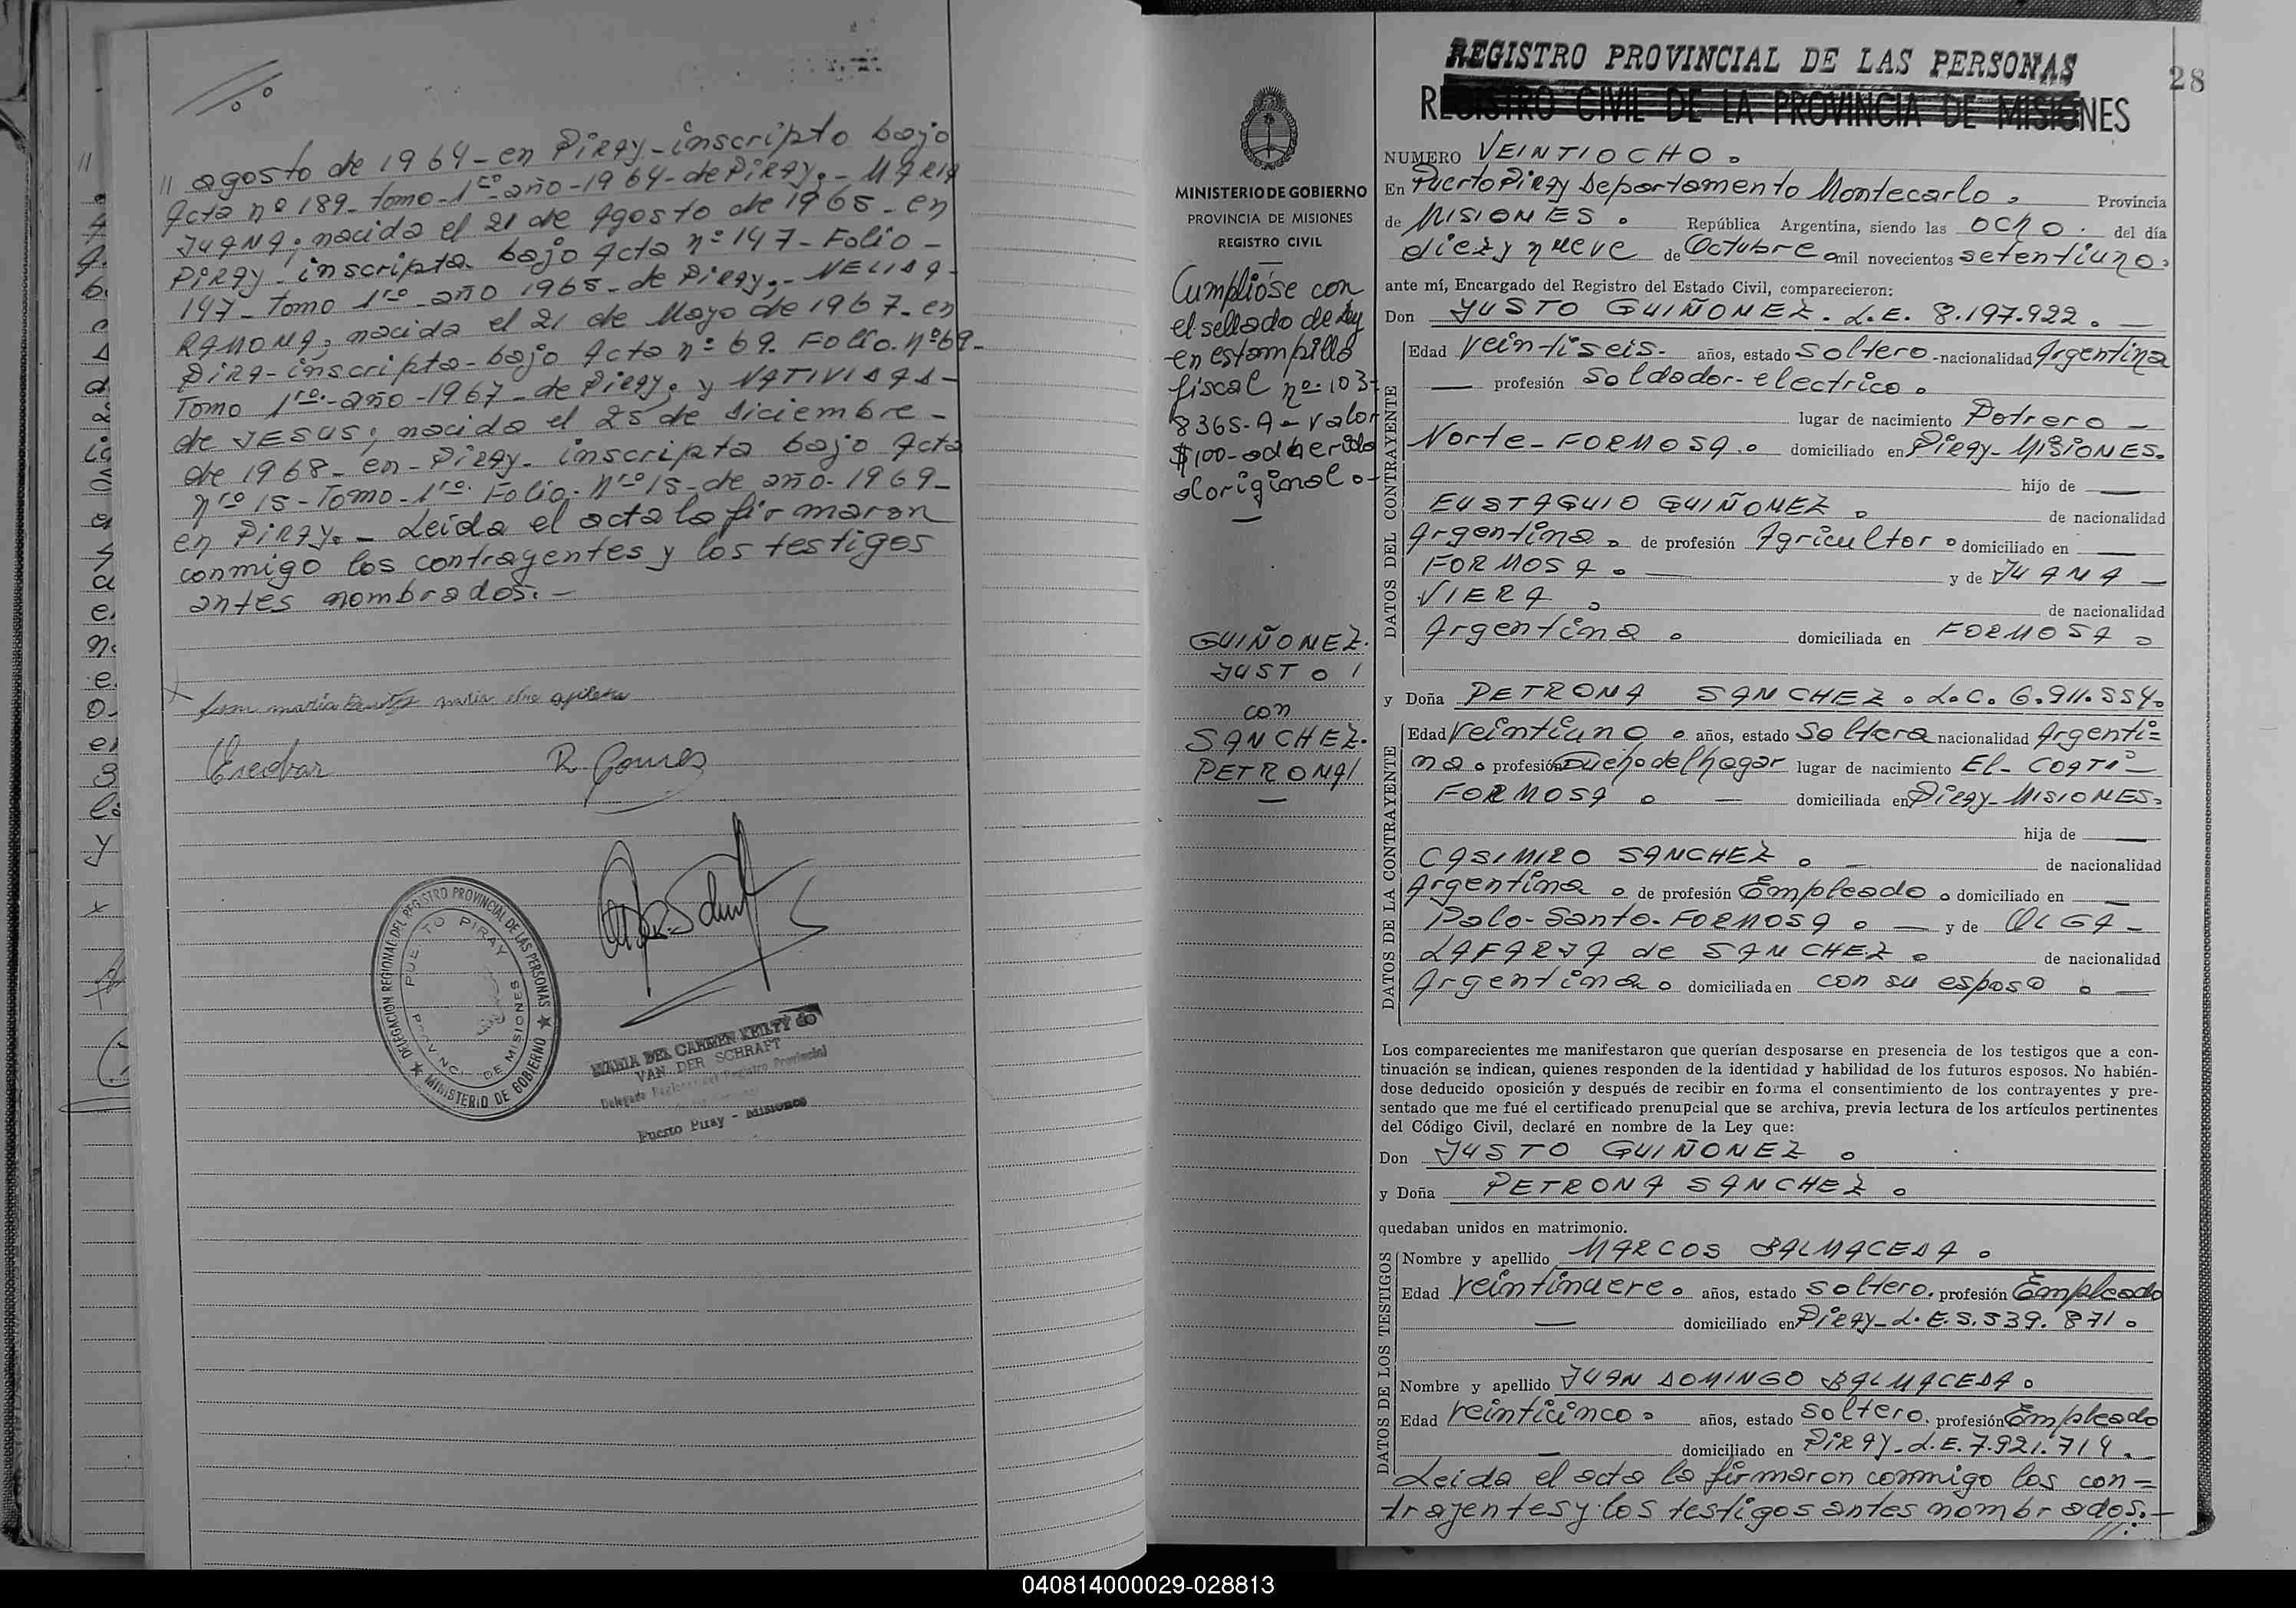 // agosto de 1964 - en Piray - inscripto bajo
Acta nº 189 - tomo - 1ro - año - 1964 - de Piray. - MARIA
JUANA; nacida el 21 de Agosto de 1965 - en
Piray - inscripta bajo Acta nº 147 - Folio -
147 - Tomo 1ro - año 1965 - de Piray. - NELIDA -
RAMONA; nacida el 21 de Mayo de 1967 - en
Pira - inscripta - bajo Acta nº 69. Folio. nº 69 -
Tomo 1ro. - año - 1967 - de Piray. y NATIVIDAD -
de JESUS; nacida el 25 de diciembre -
de 1968 - en - Piray - inscripta bajo Acta
nro 15 - Tomo - 1ro. Folio. Nro 15 - de año - 1969 -
en Piray. - Leida el acta la firmaron
conmigo los contrayentes y los testigos
antes nombrados. -
Escobar
R Gomes
DELEGACION REGIONAL DEL REGISTRO PROVINCIAL DE LAS PERSONAS
★ MINISTERIO DE GOBIERNO ★
PUE TO PIRAY
P OV NCI DE MISIONES
MARIA DEL CARMEN KEILTY de
VAN DER SCHRAFT
Delegada Regional del Registro Provincial
Puerto Piray - Misiones
MINISTERIO DE GOBIERNO
PROVINCIA DE MISIONES
REGISTRO CIVIL
Cumplióse con
el sellado de Ley
en estampilla
fiscal nº 103-
8365-A - valor
$100 - adherida
al original. -
GUIÑONEZ.
JUSTO /
con
SANCHEZ.
PETRONA/
REGISTRO PROVINCIAL DE LAS PERSONAS
28
REGISTRO CIVIL DE LA PROVINCIA DE MISIONES
NUMERO VEINTIOCHO.
En Puerto Piray Departamento Montecarlo, Provincia
de MISIONES. República Argentina, siendo las ocho. del día
diez y nueve de Octubre mil novecientos setentiuno,
ante mí, Encargado del Registro del Estado Civil, comparecieron:
Don JUSTO GUIÑONEZ. L.E. 8.197.922. -
DATOS DEL CONTRAYENTE
Edad veintiseis - años, estado soltero - nacionalidad Argentina
— profesión Soldador - electrico.
lugar de nacimiento Potrero -
Norte - FORMOSA. domiciliado en Piray - MISIONES.
hijo de —
EUSTAQUIO GUIÑONEZ. de nacionalidad
Argentina. de profesión Agricultor. domiciliado en —
FORMOSA. — y de JUANA -
VIERA. de nacionalidad
Argentina. domiciliada en FORMOSA.
y Doña PETRONA SANCHEZ. L.C. 6.911.554.
DATOS DE LA CONTRAYENTE
Edad veintiuno. años, estado Soltera nacionalidad Argenti=
na. profesión Dueña del hogar lugar de nacimiento El - COATI -
FORMOSA. — domiciliada en Piray - MISIONES.
hija de —
CASIMIRO SANCHEZ. - de nacionalidad
Argentina. de profesión Empleado. domiciliado en —
Palo - Santo - FORMOSA. — y de OLGA -
LAFARJA de SANCHEZ. de nacionalidad
Argentina. domiciliada en con su esposo. -
Los comparecientes me manifestaron que querían desposarse en presencia de los testigos que a con-
tinuación se indican, quienes responden de la identidad y habilidad de los futuros esposos. No habién-
dose deducido oposición y después de recibir en forma el consentimiento de los contrayentes y pre-
sentado que me fué el certificado prenupcial que se archiva, previa lectura de los artículos pertinentes
del Código Civil, declaré en nombre de la Ley que:
Don JUSTO GUIÑONEZ.
y Doña PETRONA SANCHEZ.
quedaban unidos en matrimonio.
DATOS DE LOS TESTIGOS
Nombre y apellido MARCOS BALMACEDA.
Edad veintinueve. años, estado soltero. profesión Empleado
— domiciliado en Piray - L.E. 5.539.871.
Nombre y apellido JUAN DOMINGO BALMACEDA.
Edad veinticinco. años, estado soltero. profesión Empleado
— domiciliado en Piray - L.E. 7.921.714. -
Leida el acta la firmaron conmigo los con=
trayentes y los testigos antes nombrados. -
//.
040814000029-028813